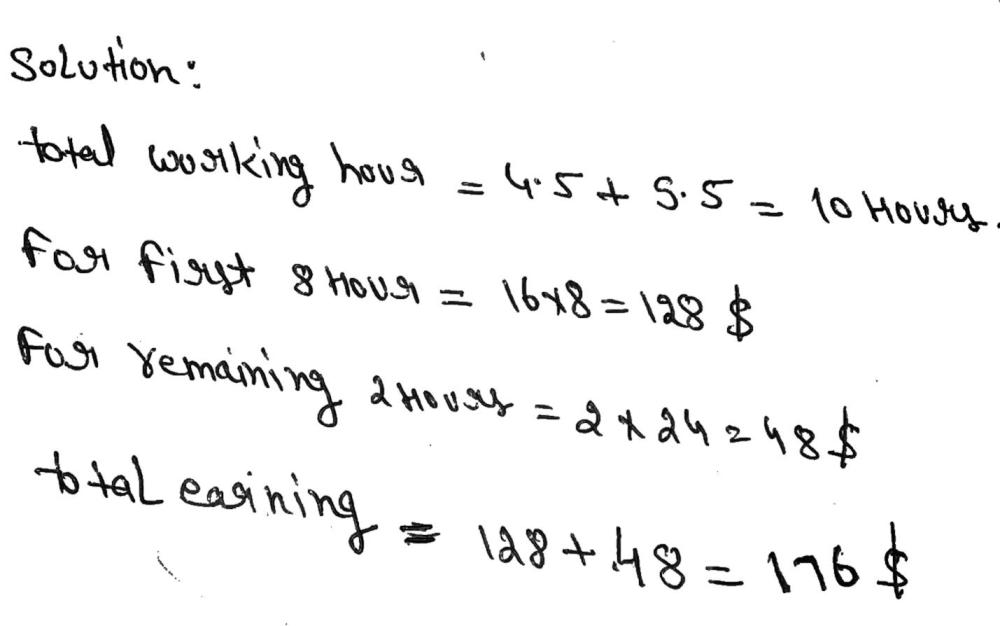 Solution:
total working hour = 4.5 + 5.5 = 10 Hours.
For first 8 Hour = 16x8 = 128 $
For remaining 2 Hours = 2 x 24 = 48 $
total earining = 128 + 48 = 176 $